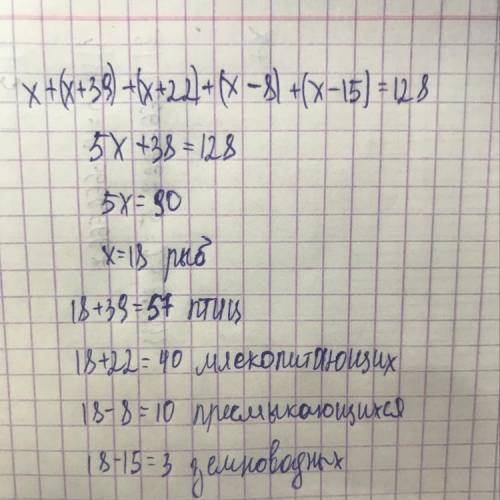 x+(x+39)+(x+22)+(x-8)+(x-15)=128
5x+38=128
5x=90
x=18 рыб
18+39=57 птиц
18+22=40 млекопитающих
18-8=10 пресмыкающихся
18-15=3 земноводных